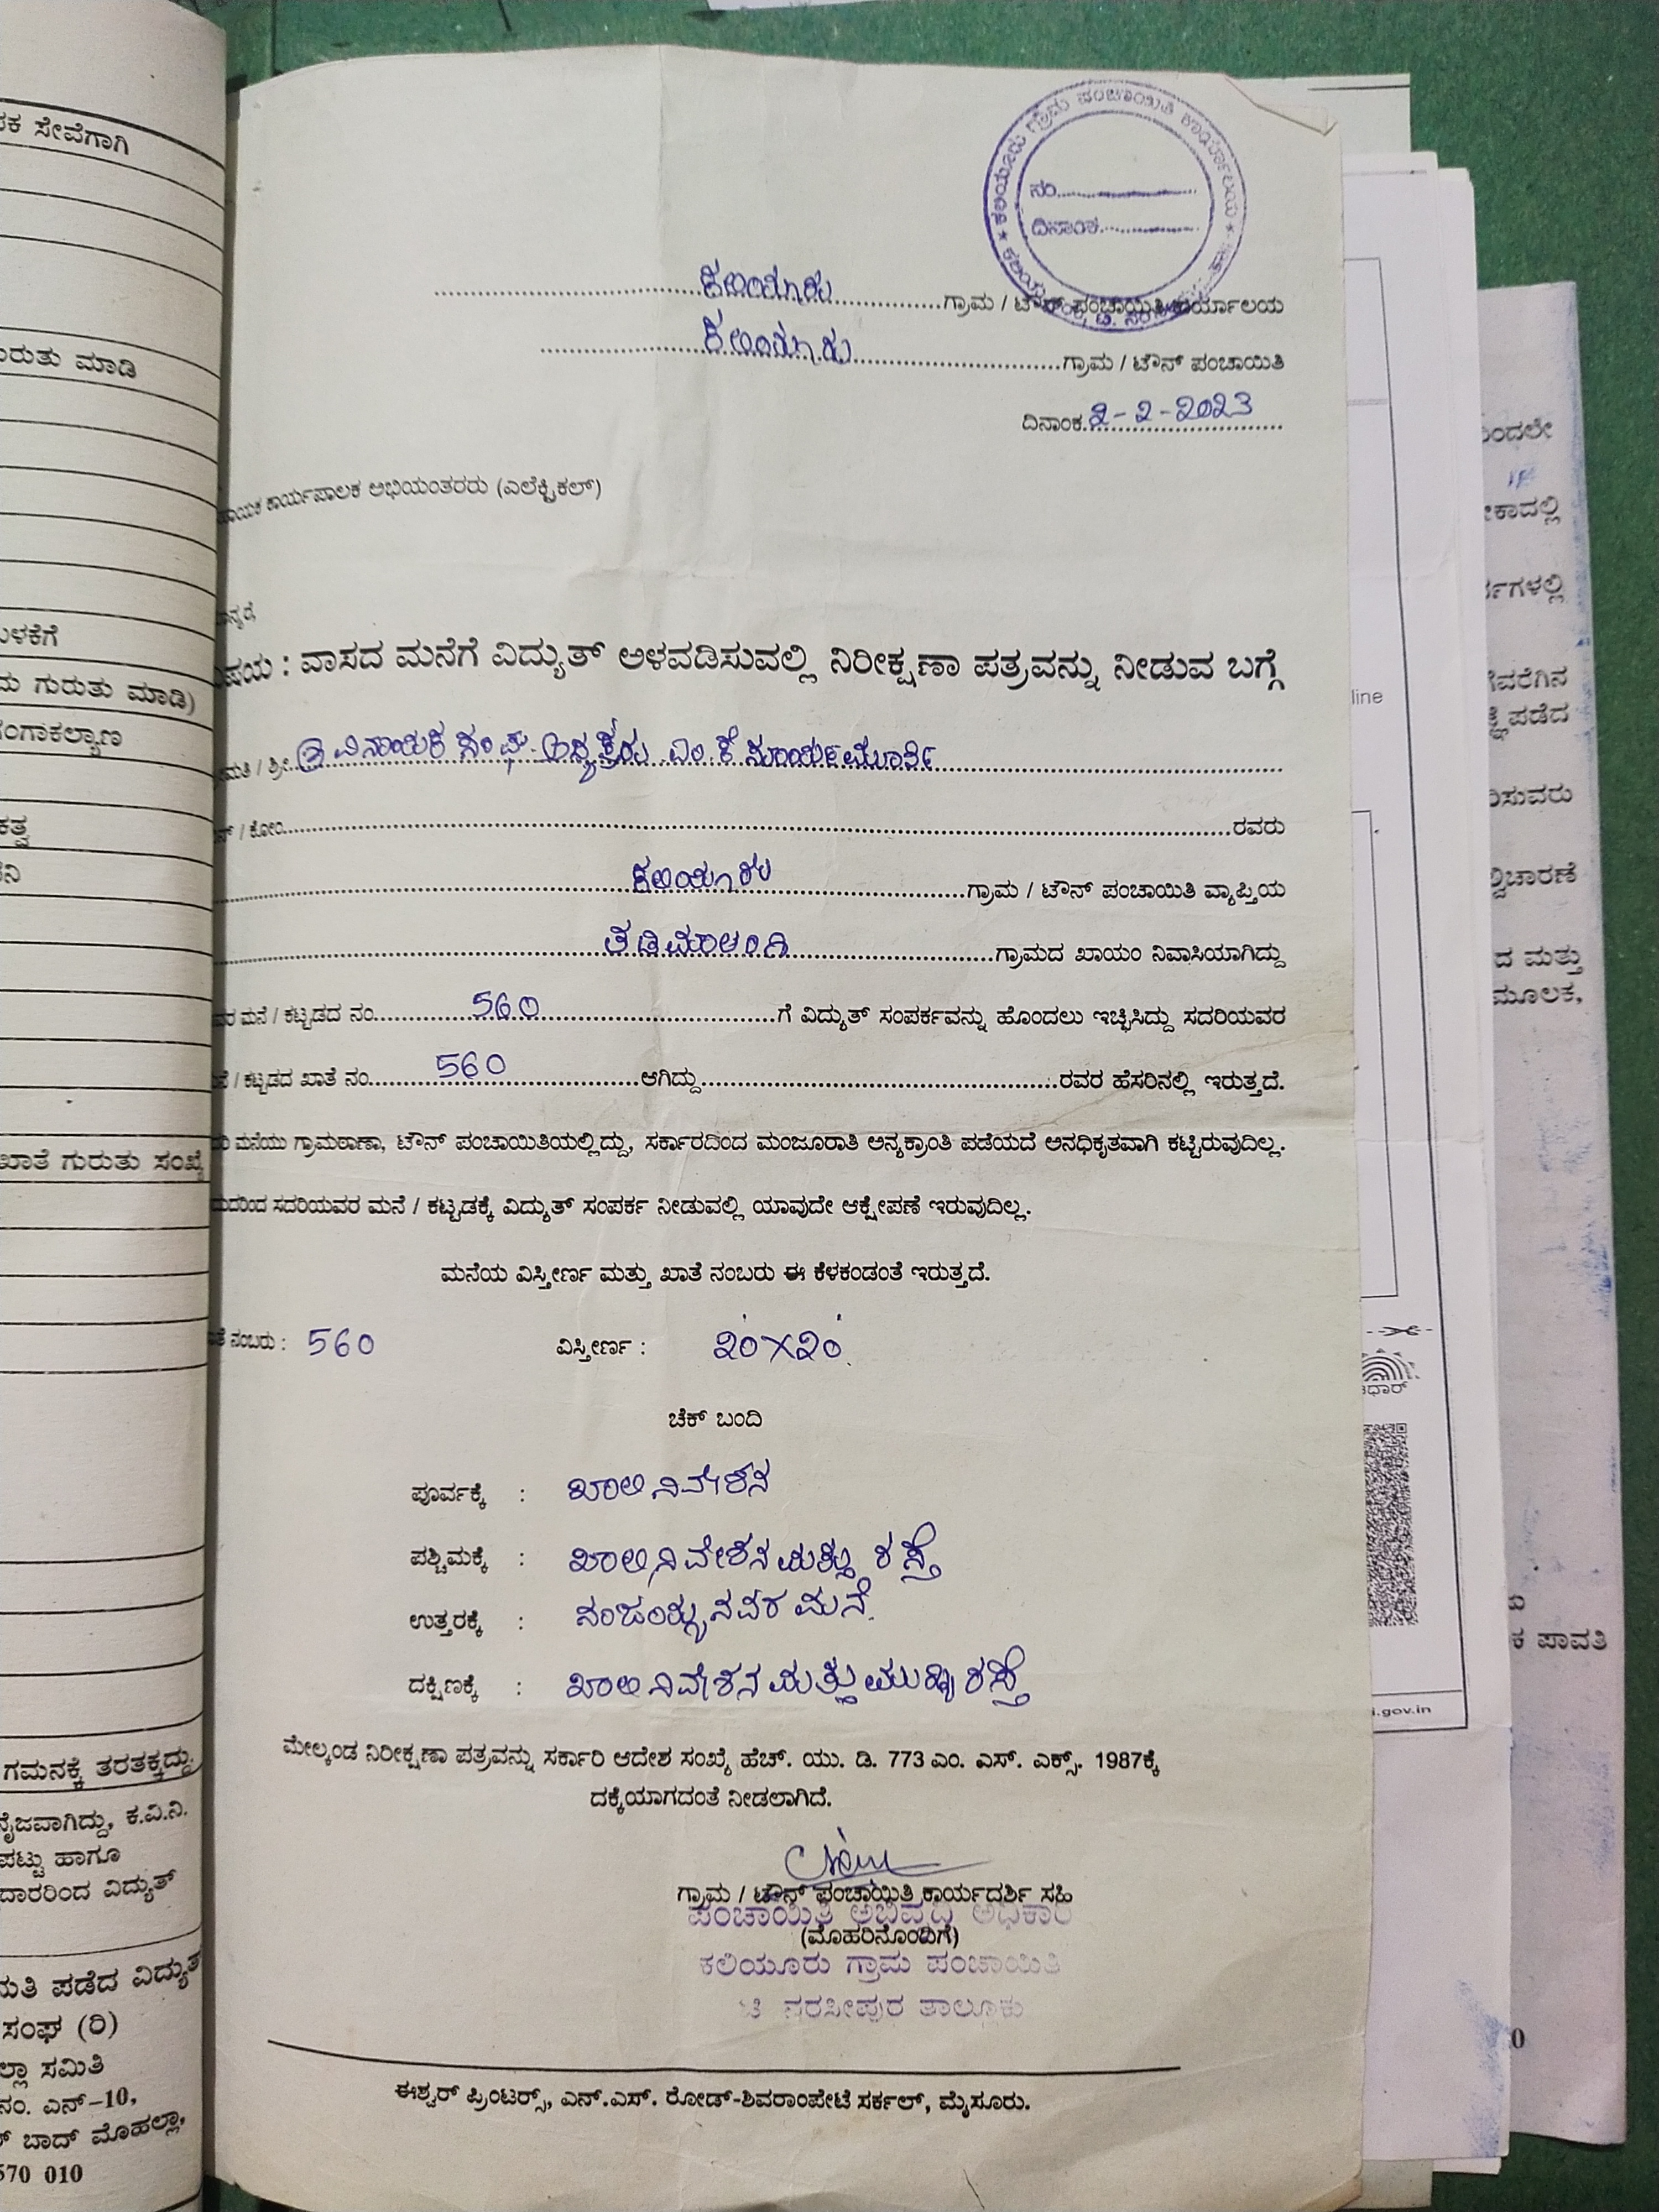 ಕಲಿಯೂರು ಗ್ರಾಮ ಪಂಚಾಯಿತಿ ಕಾರ್ಯಾಲಯ
ನಂ..........
ದಿನಾಂಕ..........
ಕಲಿಯೂರು ಗ್ರಾಮ / ಟೌನ್ ಪಂಚಾಯಿತಿ ಕಾರ್ಯಾಲಯ
ಕಲಿಯೂರು ಗ್ರಾಮ / ಟೌನ್ ಪಂಚಾಯಿತಿ
ದಿನಾಂಕ 2-2-2023
ಕಾರ್ಯಪಾಲಕ ಅಭಿಯಂತರರು (ಎಲೆಕ್ಟ್ರಿಕಲ್)
ವಾಸದ ಮನೆಗೆ ವಿದ್ಯುತ್ ಅಳವಡಿಸುವಲ್ಲಿ ನಿರೀಕ್ಷಣಾ ಪತ್ರವನ್ನು ನೀಡುವ ಬಗ್ಗೆ
/ ಶ್ರೀ ವಿನಾಯಕ ಸಂಘ ಅಧ್ಯಕ್ಷರು ಎಂ. ಕೆ ಸೂರ್ಯಮೂರ್ತಿ
/ ಕೋಂ ರವರು
ಕಲಿಯೂರು ಗ್ರಾಮ / ಟೌನ್ ಪಂಚಾಯಿತಿ ವ್ಯಾಪ್ತಿಯ
ತಡಿಮಾಲಂಗಿ ಗ್ರಾಮದ ಖಾಯಂ ನಿವಾಸಿಯಾಗಿದ್ದು
ಮನೆ / ಕಟ್ಟಡದ ನಂ. 560 ಗೆ ವಿದ್ಯುತ್ ಸಂಪರ್ಕವನ್ನು ಹೊಂದಲು ಇಚ್ಛಿಸಿದ್ದು ಸದರಿಯವರ
/ ಕಟ್ಟಡದ ಖಾತೆ ನಂ. 560 ಆಗಿದ್ದು ರವರ ಹೆಸರಿನಲ್ಲಿ ಇರುತ್ತದೆ.
ಮನೆಯು ಗ್ರಾಮಠಾಣಾ, ಟೌನ್ ಪಂಚಾಯಿತಿಯಲ್ಲಿದ್ದು, ಸರ್ಕಾರದಿಂದ ಮಂಜೂರಾತಿ ಅನ್ಯಕ್ರಾಂತಿ ಪಡೆಯದೆ ಅನಧಿಕೃತವಾಗಿ ಕಟ್ಟಿರುವುದಿಲ್ಲ.
ಸದರಿಯವರ ಮನೆ / ಕಟ್ಟಡಕ್ಕೆ ವಿದ್ಯುತ್ ಸಂಪರ್ಕ ನೀಡುವಲ್ಲಿ ಯಾವುದೇ ಆಕ್ಷೇಪಣೆ ಇರುವುದಿಲ್ಲ.
ಮನೆಯ ವಿಸ್ತೀರ್ಣ ಮತ್ತು ಖಾತೆ ನಂಬರು ಈ ಕೆಳಕಂಡಂತೆ ಇರುತ್ತದೆ.
ನಂಬರು : 560 ವಿಸ್ತೀರ್ಣ : 20'X20'
ಚೆಕ್ ಬಂದಿ
ಪೂರ್ವಕ್ಕೆ : ಖಾಲಿ ನಿವೇಶನ
ಪಶ್ಚಿಮಕ್ಕೆ : ಖಾಲಿ ನಿವೇಶನ ಮತ್ತು ರಸ್ತೆ
ಉತ್ತರಕ್ಕೆ : ನಂಜಯ್ಯನವರ ಮನೆ
ದಕ್ಷಿಣಕ್ಕೆ : ಖಾಲಿ ನಿವೇಶನ ಮತ್ತು ಮುಖ್ಯ ರಸ್ತೆ
ಮೇಲ್ಕಂಡ ನಿರೀಕ್ಷಣಾ ಪತ್ರವನ್ನು ಸರ್ಕಾರಿ ಆದೇಶ ಸಂಖ್ಯೆ ಹೆಚ್. ಯು. ಡಿ. 773 ಎಂ. ಎಸ್. ಎಕ್ಸ್. 1987ಕ್ಕೆ
ದಕ್ಕೆಯಾಗದಂತೆ ನೀಡಲಾಗಿದೆ.
ಗ್ರಾಮ / ಟೌನ್ ಪಂಚಾಯಿತಿ ಕಾರ್ಯದರ್ಶಿ ಸಹಿ
ಪಂಚಾಯಿತಿ ಅಭಿವೃದ್ಧಿ ಅಧಿಕಾರಿ
(ಮೊಹರಿನೊಂದಿಗೆ)
ಕಲಿಯೂರು ಗ್ರಾಮ ಪಂಚಾಯಿತಿ
ಟಿ ನರಸೀಪುರ ತಾಲ್ಲೂಕು
ಈಶ್ವರ್ ಪ್ರಿಂಟರ್ಸ್, ಎನ್.ಎಸ್. ರೋಡ್-ಶಿವರಾಂಪೇಟೆ ಸರ್ಕಲ್, ಮೈಸೂರು.
ಸೇವೆಗಾಗಿ
ಗುರುತು ಮಾಡಿ
ಗುರುತು ಮಾಡಿ)
ಗಂಗಾಕಲ್ಯಾಣ
ಖಾತೆ ಗುರುತು ಸಂಖ್ಯೆ
ಗಮನಕ್ಕೆ ತರತಕ್ಕದ್ದು.
ನೈಜವಾಗಿದ್ದು, ಕ.ವಿ.ನಿ.
ಹಾಗೂ
ವಿದ್ಯುತ್
ಪಡೆದ ವಿದ್ಯುತ್
ಸಂಘ (ರಿ)
ಸಮಿತಿ
ನಂ. ಎನ್-10,
ಬಾದ್ ಮೊಹಲ್ಲಾ,
570 010
line
.gov.in
ಪಡೆದ
ಮತ್ತು
ಮೂಲಕ,
ಪಾವತಿ